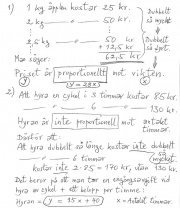 1) 1 kg äpplen kostar 25 kr.
2 kg —"— 50 kr.
Dubbelt så mycket
2,5 kg —"— 50 kr
+ 12,5 kr
Dubbelt så dyrt
Man säger: 62,5 kr.
Priset är proportionellt mot vikten.
y = 25x
2) Att hyra en cykel i 3 timmar kostar 85 kr.
—"— 6 —"— 130 kr.
Hyran är inte proportionell mot antalet timmar.
Därför att:
Att hyra dubbelt så länge kostar inte dubbelt
6 timmar så mycket
kostar inte 2·85 = 170 kr, utan 130 kr.
Det beror på att man tar en engångsavgift vid
hyra av cykel + ett belopp per timme:
Hyran = y = 15x + 40 x = Antalet timmar